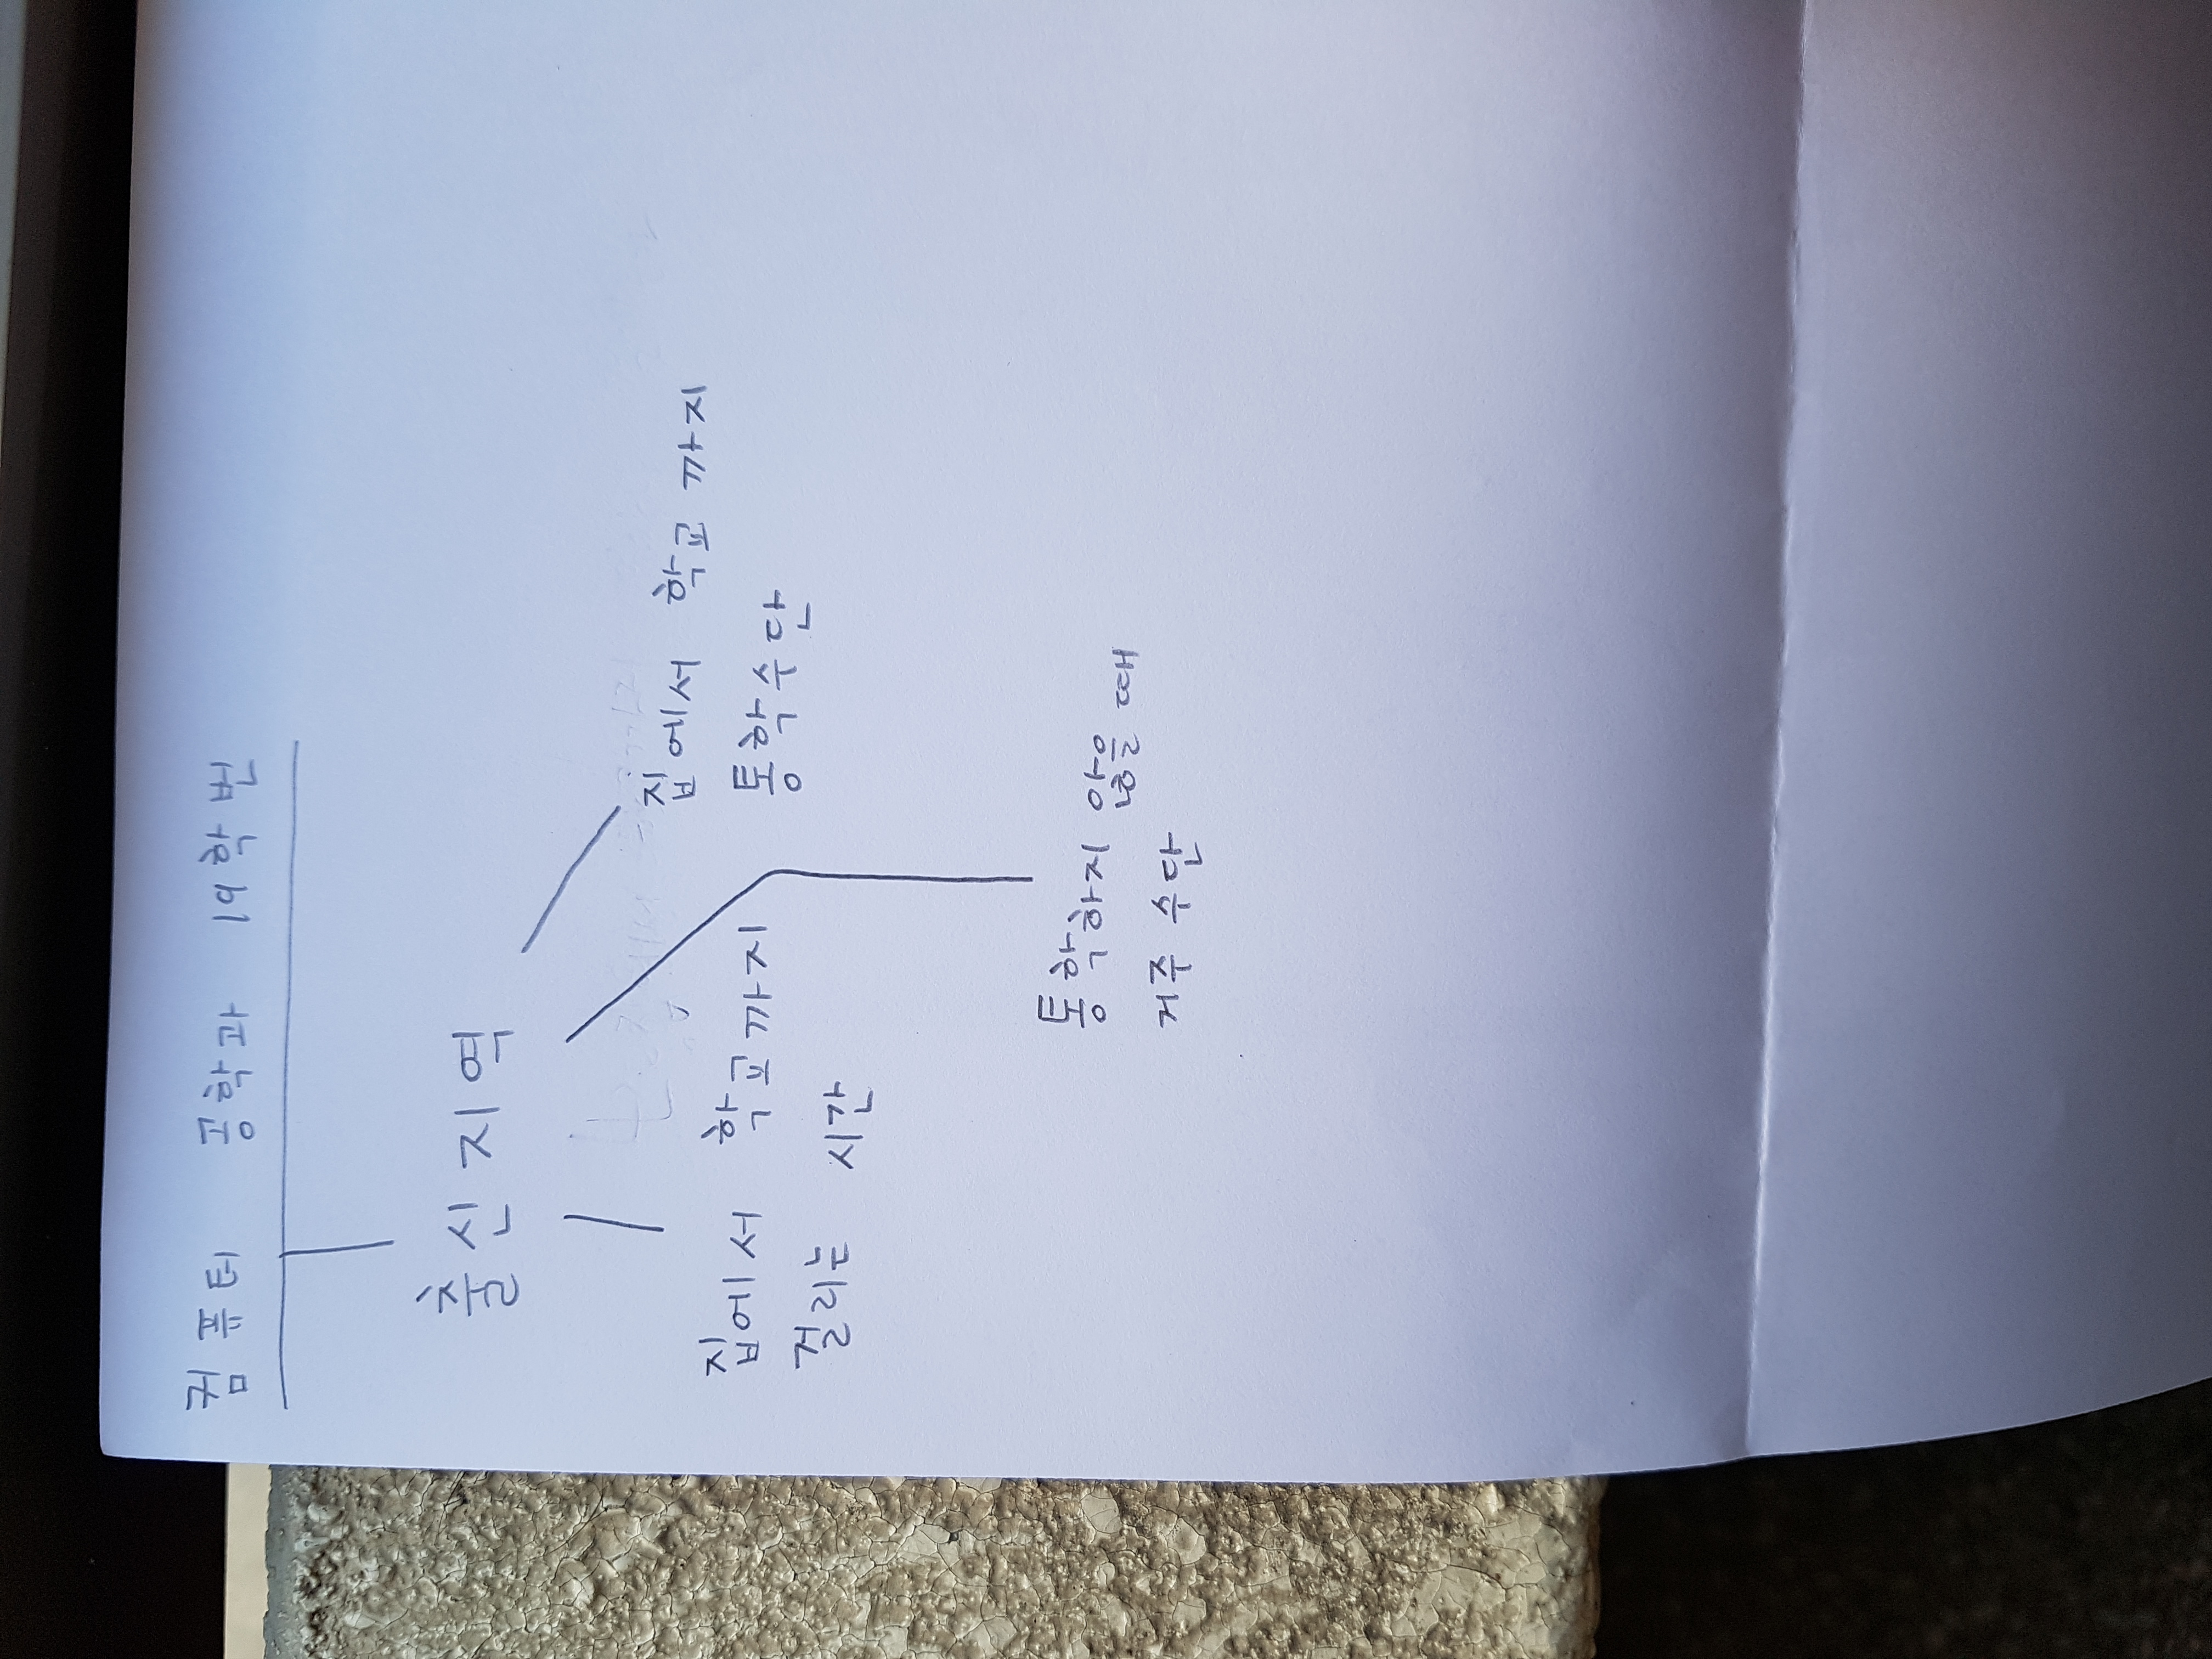 컴퓨터 공학과 19학번
출신지역
집에서 학교까지
걸리는 시간
집에서 학교 까지
통학수단
통학하지 않을 때
거주 수단